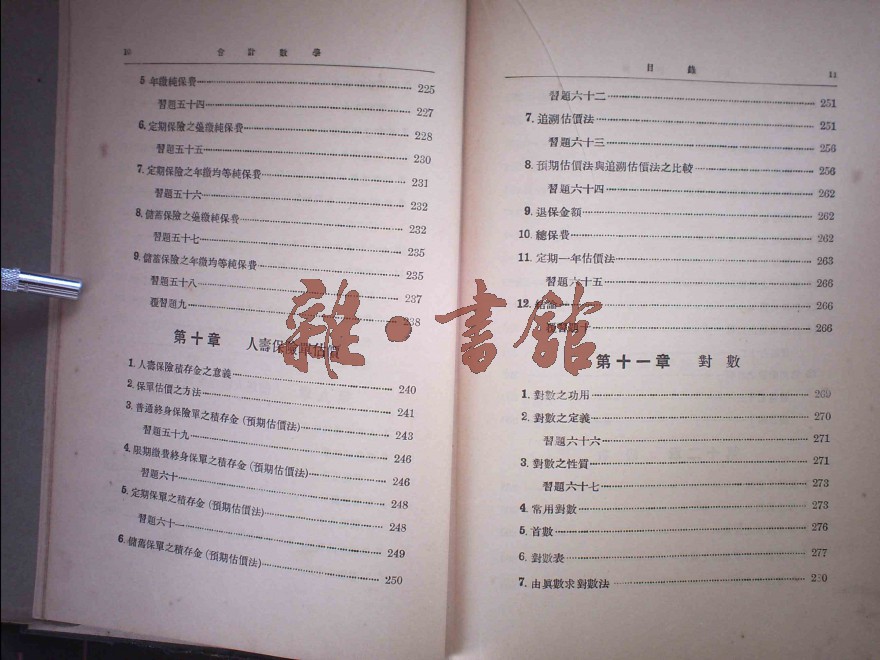 10 會計數學
5. 年繳純保費 225
習題五十四 227
6. 定期保險之躉繳純保費 228
習題五十五 230
7. 定期保險之年繳均等純保費 231
習題五十六 232
8. 儲蓄保險之躉繳純保費 232
習題五十七 235
9. 儲蓄保險之年繳均等純保費 235
習題五十八 237
覆習題九 238
第十章 人壽保險單估價
1. 人壽保險積存金之意義 240
2. 保單估價之方法 241
3. 普通終身保險單之積存金(預期估價法) 243
習題五十九 246
4. 限期繳費終身保單之積存金(預期估價法) 246
習題六十 248
5. 定期保單之積存金(預期估價法) 248
習題六十一 249
6. 儲蓄保單之積存金(預期估價法) 250
目錄 11
習題六十二 251
7. 追溯估價法 251
習題六十三 256
8. 預期估價法與追溯估價法之比較 256
習題六十四 262
9. 退保金額 262
10. 總保費 262
11. 定期一年估價法 263
習題六十五 266
12. 結論 266
覆習題十 266
第十一章 對數
1. 對數之功用 269
2. 對數之定義 270
習題六十六 271
3. 對數之性質 271
習題六十七 273
4. 常用對數 273
5. 首數 276
6. 對數表 277
7. 由眞數求對數法 280
雜·書館